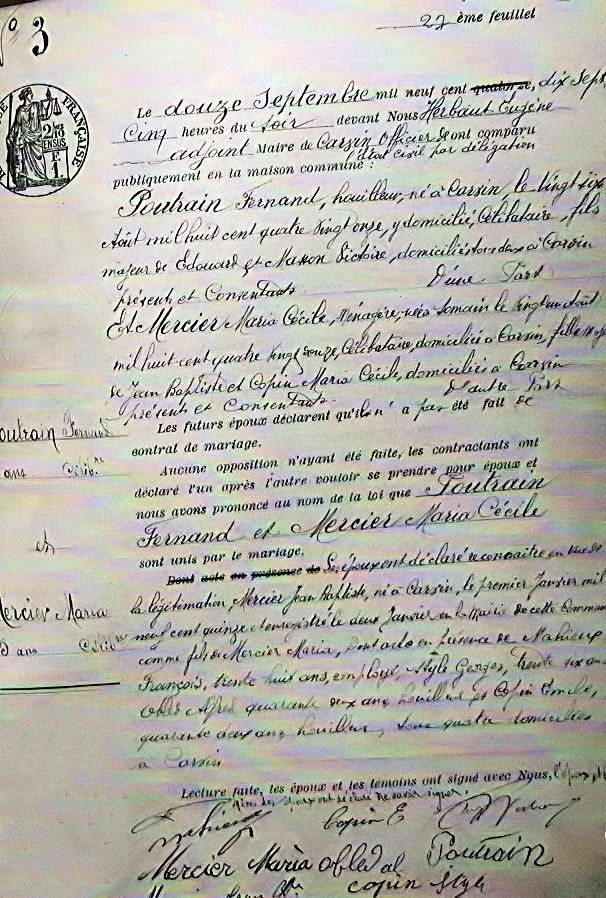 27 ème feuillet
N° 3
FRANÇAISE
Le douze Septembre mil neuf cent quatorze, dix Sept
Cinq heures du Soir devant Nous Herbaut Eugène
adjoint Maire de Carvin Officier d' ont comparu
état civil par délégation
publiquement en la maison commune :
Poutrain Fernand, houilleur, né à Carvin, le vingt six
Août mil huit cent quatre vingt onze, y domicilié, Célibataire, fils
majeur de Edouard et Masson Victoire, domiciliés tous deux à Carvin
présents et Consentants D'une Part
Et Mercier Maria Cécile, Ménagère, née à Somain le vingt un Août
mil huit cent quatre vingt douze, Célibataire, domiciliée à Carvin, fille
de Jean Baptiste et Copin Maria Cécile, domiciliés à Carvin
présents et Consentants. D'autre Part
Les futurs époux déclarent qu'il n'a pas été fait de
contrat de mariage.
Poutrain Fernand
ans Célib.re
Aucune opposition n'ayant été faite, les contractants ont
déclaré l'un après l'autre vouloir se prendre pour époux et
nous avons prononcé au nom de la loi que Poutrain
Fernand et Mercier Maria Cécile
sont unis par le mariage.
et
Dont acte en présence de Les époux ont déclaré reconnaitre en vue de
la légitimation Mercier Jean Baptiste, né à Carvin, le premier Janvier mil
neuf cent quinze et enregistré le deux Janvier en la Mairie de cette Commune
comme fils de Mercier Maria, Dont acte en présence de Mahieux
Mercier Maria
5 ans Célib.re
François, trente huit ans, employé, Style Georges, trente six ans
Obled Alfred quarante deux ans, houilleur et Copin Emile,
quarante deux ans houilleur, tous quatre domiciliés
à Carvin
Lecture faite, les époux et les témoins ont signé avec Nous,
ont déclaré ne savoir signer.
Copin E
Mercier Maria Obled al Poutrain
copin Style